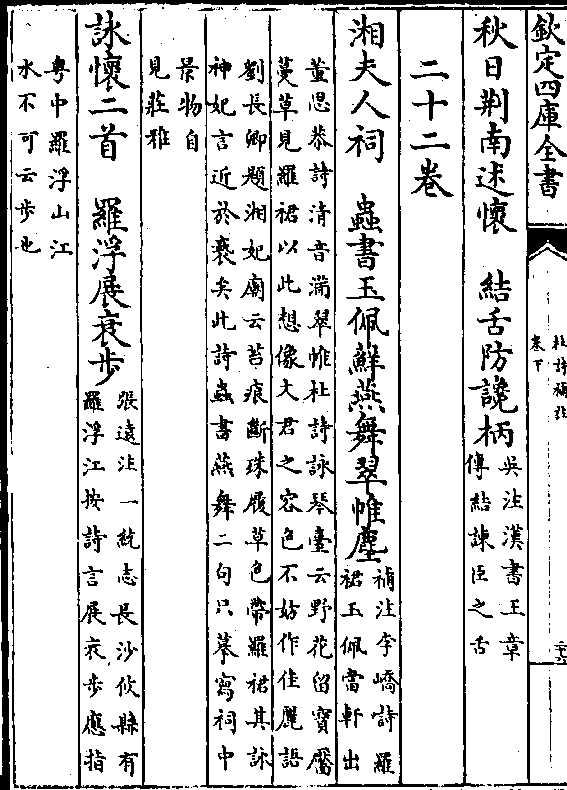 欽定四庫全書
杜詩補註
卷下
二十六
秋日荆南述懷　結舌防讒柄
吳注漢書王章
傳結諫臣之舌
二十二卷
湘夫人祠　蟲書玉佩蘚燕舞翠帷塵
補注李嶠詩羅
裙玉佩當軒出
董思恭詩清音滿翠帷杜詩詠琴臺云野花留寶靨
蔓草見羅裙以此想像文君之容色不妨作佳麗語
劉長卿題湘妃廟云苔痕斷珠履草色帶羅裙其詠
神妃言近於褻矣此詩蟲書燕舞二句只摹寫祠中
景物自
見莊雅
詠懷二首　羅浮展衰步
張遠注一統志長沙攸縣有
羅浮江按詩言展衰步應指
粤中羅浮山江
水不可云步也